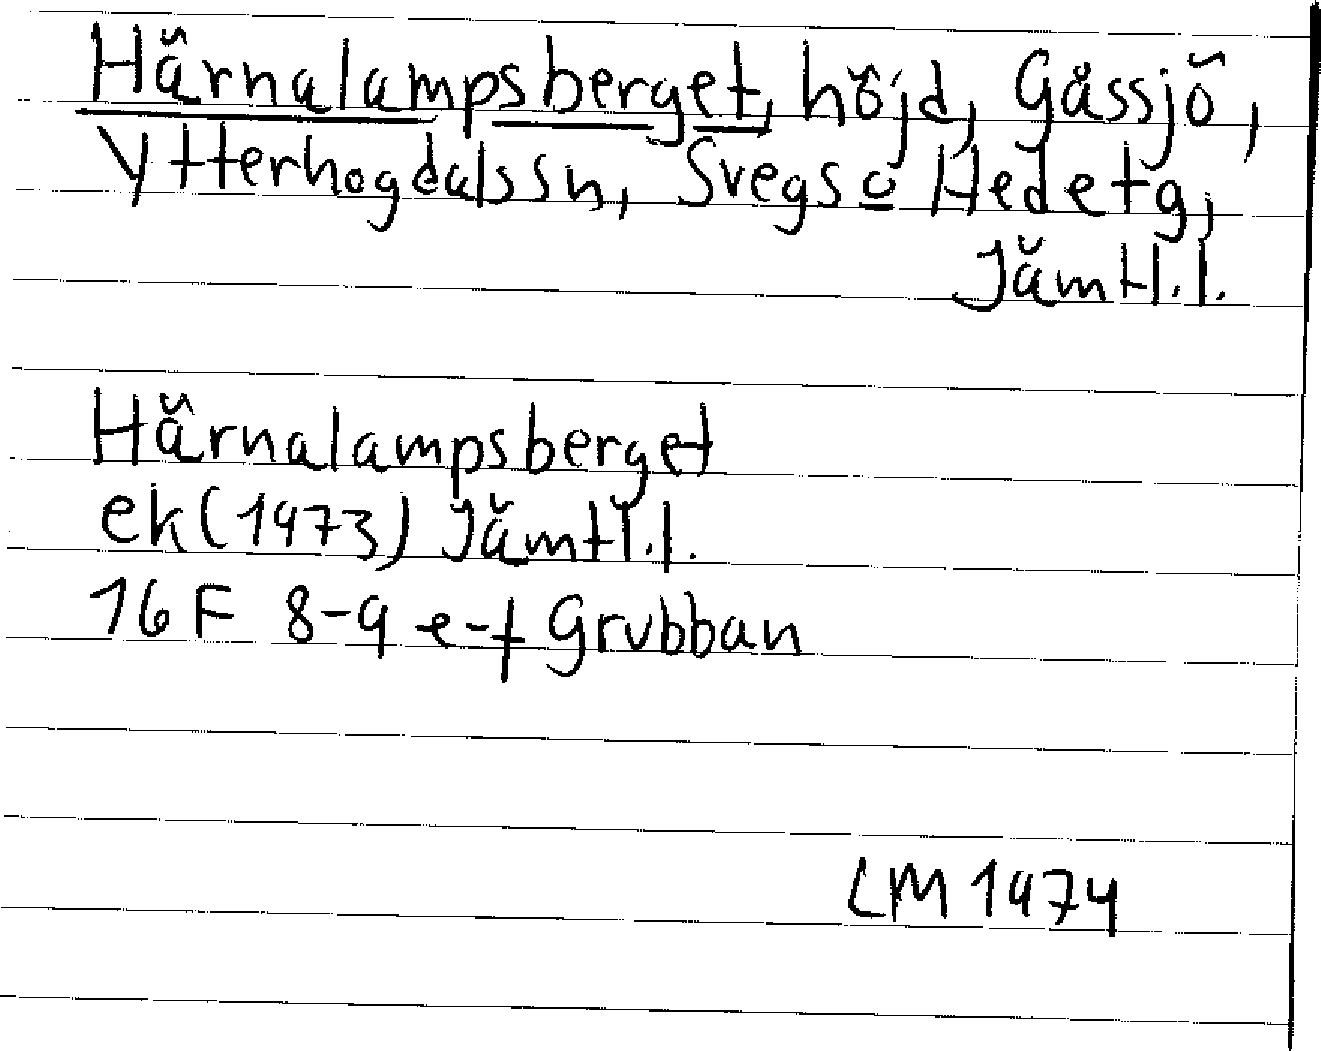 Härnalampsberget, höjd, Gåssjö,
Ytterhogdalssn, Svegs o Hedetg,
Jämtl.l.
Härnalampsberget
ek (1973) Jämtl.l.
16 F 8-9 e-f Grubban
LM 1974